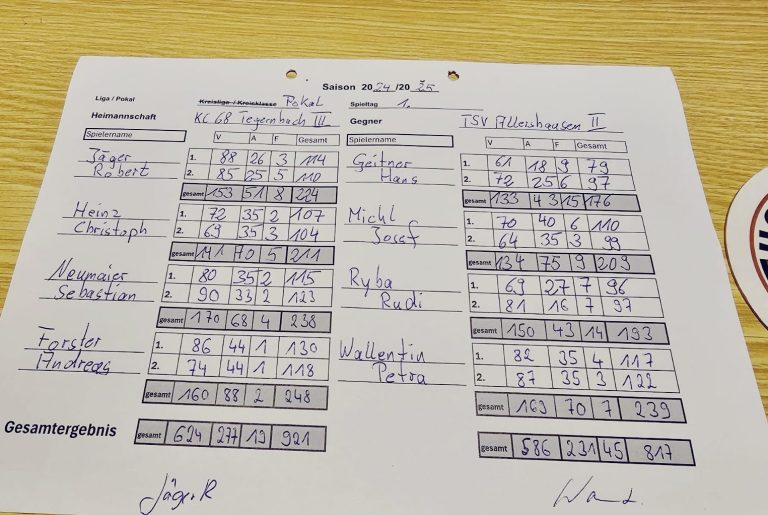 Saison 2024/2025
Liga / Pokal Kreisliga / Kreisklasse Pokal Spieltag 1.
Heimannschaft KC 68 Tegernbach III Gegner TSV Allershausen II
Spielername V A F Gesamt Spielername V A F Gesamt
Jäger 1. 88 26 3 114 Geitner 61 18 9 79
Robert 2. 85 25 5 110 Hans 72 25 6 97
gesamt 153 51 8 224 gesamt 133 43 15 176
Heinz 1. 72 35 2 107 Michl 1. 70 40 6 110
Christoph 2. 69 35 3 104 Josef 2. 64 35 3 99
gesamt 141 70 5 211 gesamt 134 75 9 209
Neumaier 1. 80 35 2 115 Ryba 1. 69 27 7 96
Sebastian 2. 90 33 2 123 Rudi 2. 81 16 7 97
gesamt 170 68 4 238 gesamt 150 43 14 193
Forster 1. 86 44 1 130 Wallentin 1. 82 35 4 117
Andreas 2. 74 44 1 118 Petra 2. 87 35 3 122
gesamt 160 88 2 248 gesamt 163 70 7 239
Gesamtergebnis gesamt 624 277 19 921 gesamt 586 231 45 817
Jäger. R